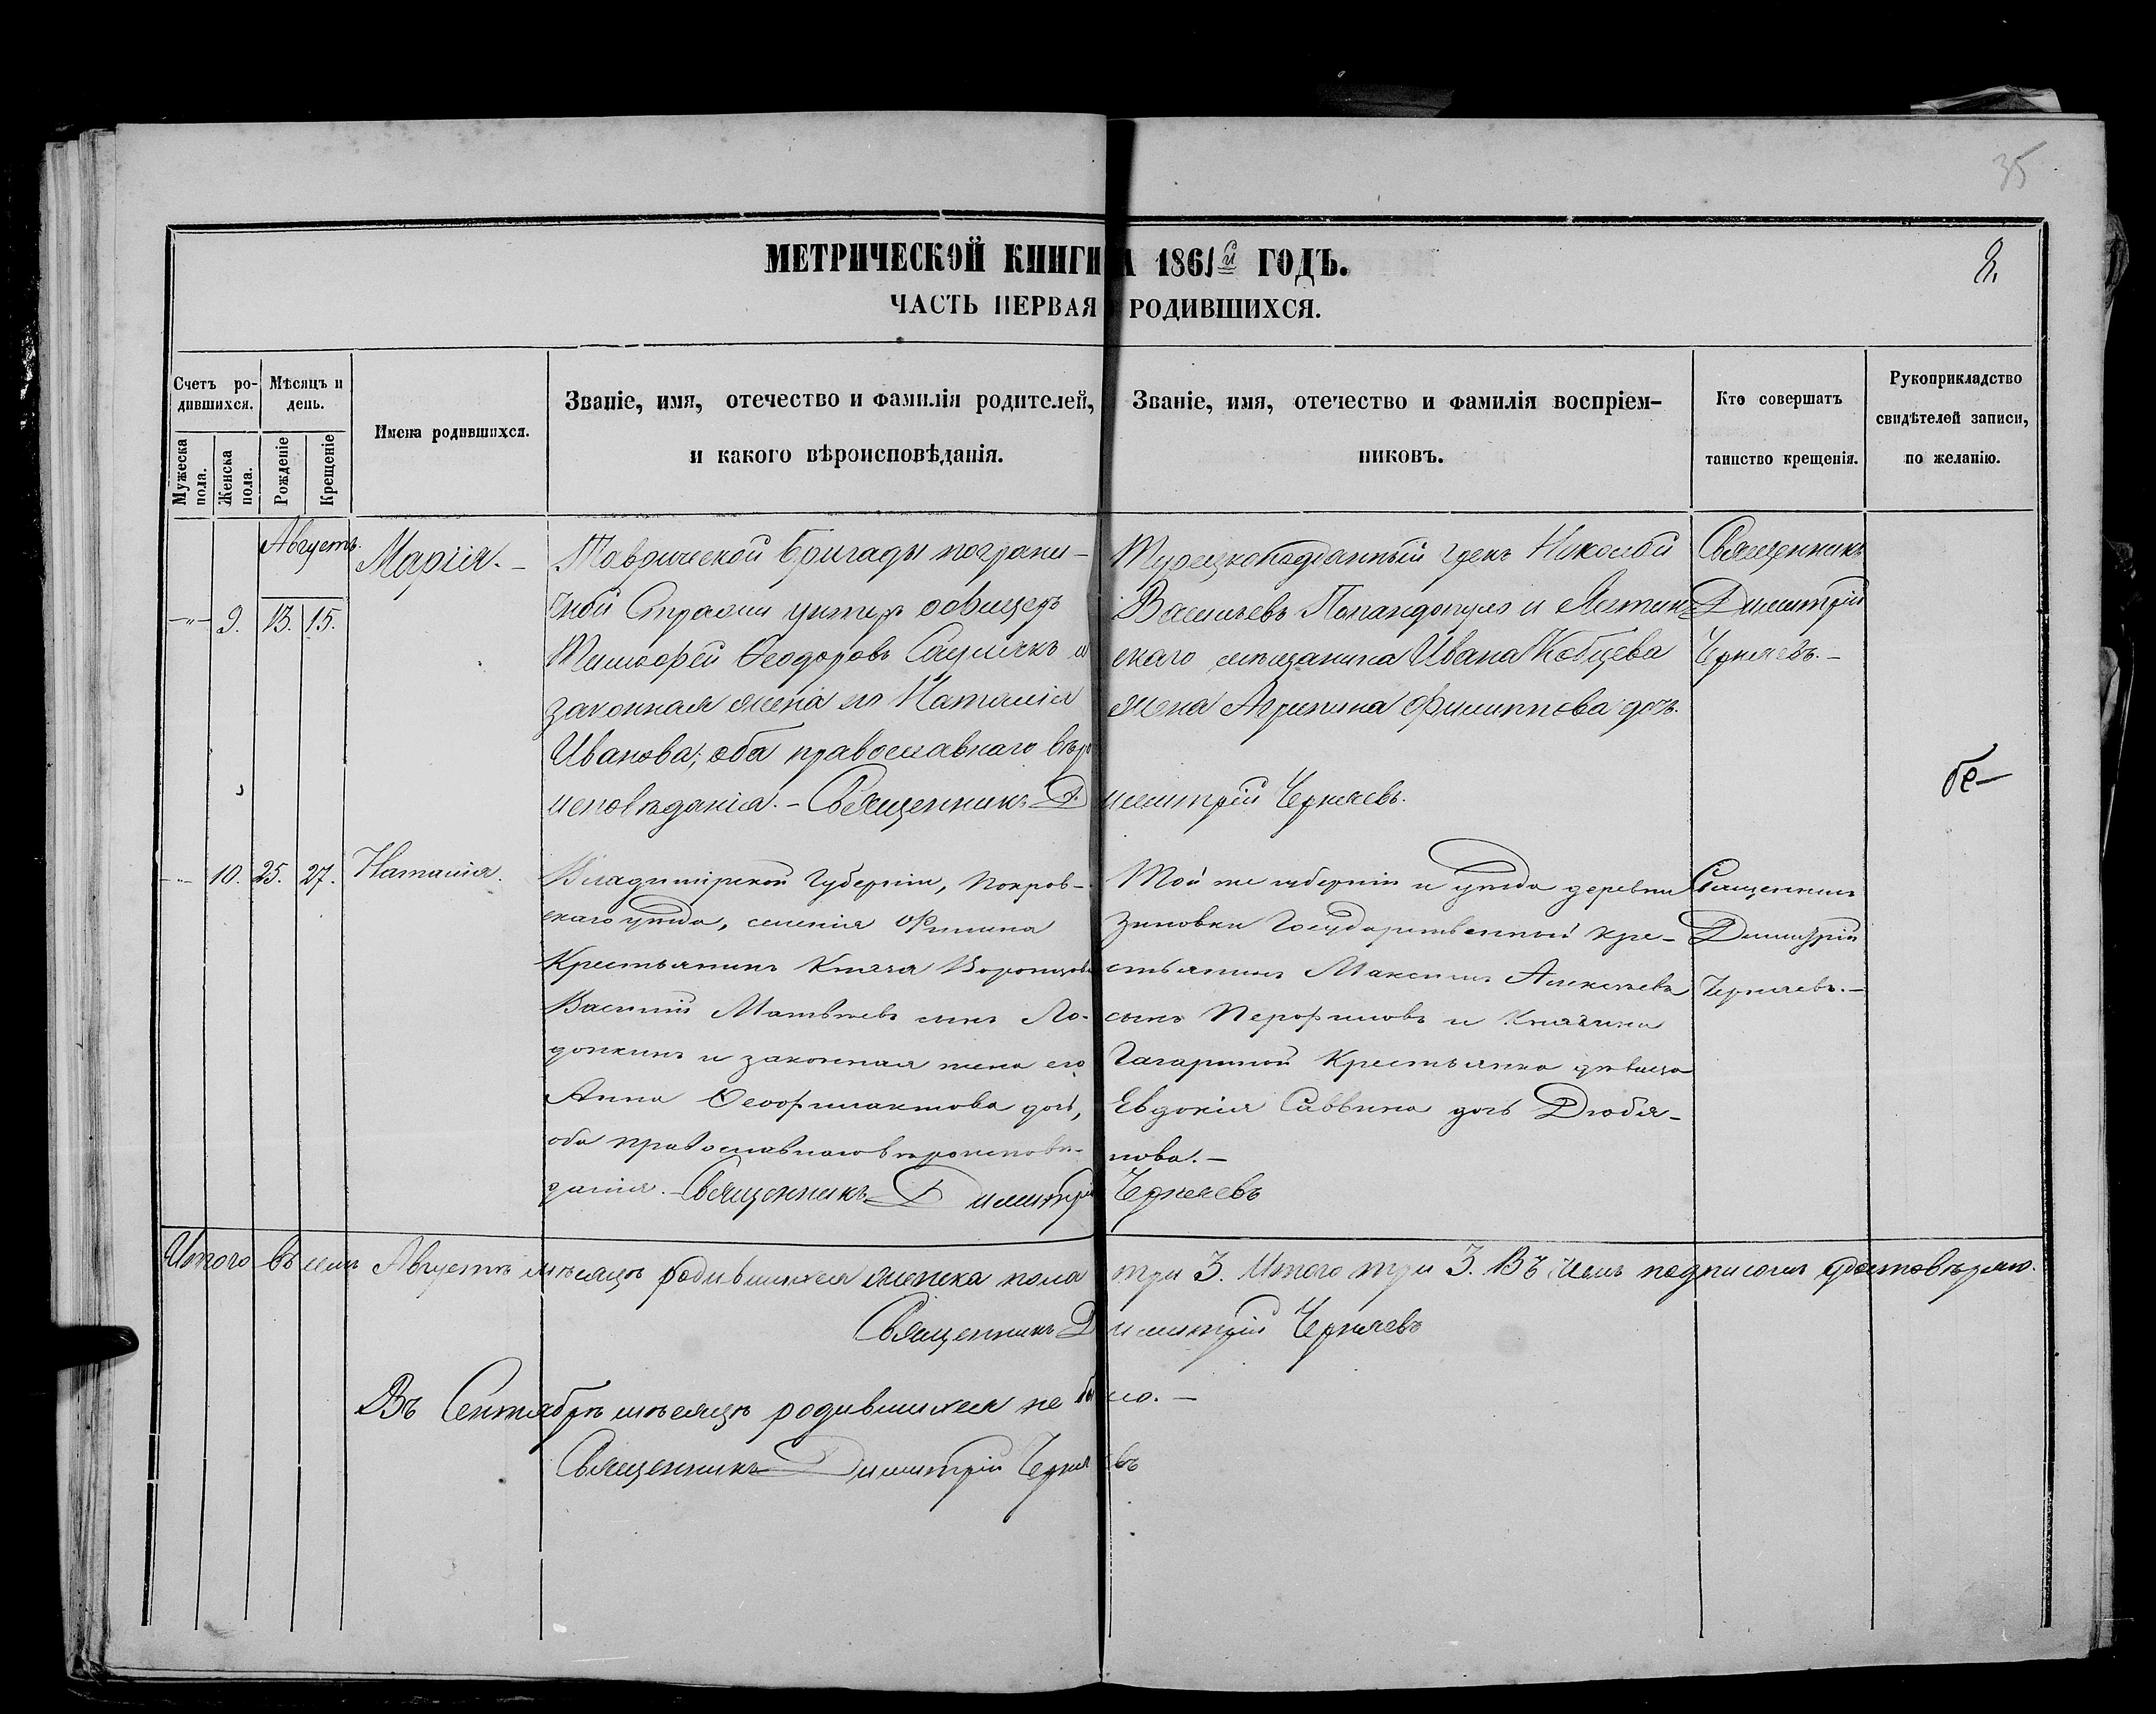 35
МЕТРИЧЕСКОЙ КНИГИ 1861й ГОДЪ.
8.
ЧАСТЬ ПЕРВАЯ РОДИВШИХСЯ.
Счетъ ро-
дившихся.
Мужеска пола.
Женска пола.
Мѣсяцъ и
день.
Рожденіе
Крещеніе
Имена родившихся.
Званіе, имя, отечество и фамилія родителей,
и какого вѣроисповѣданія.
Званіе, имя, отечество и фамилія воспріем-
никовъ.
Кто совершатъ
таинство крещенія.
Рукоприкладство
свидѣтелей записи,
по желанію.
Августъ.
9. 13. 15.
Марія.
Таврической Бригады пограни-
чной Стражи унтеръ офицеръ
Тимофей Ѳеодоровъ и
законная жена его Наталія
Иванова; оба православнаго вѣро
исповѣданія. - Священникъ Димитрій Черняевъ.
Турецкоподданный грекъ Николай
Васильевъ Папандопуло и Ялтин-
скаго мѣщанина Ивана Кобцева
жена Агрипина Филиппова дочь.
Священникъ
Димитрій
Черняевъ. -
10. 25. 27.
Наталія.
Владимірской Губерніи, Покров-
скаго уѣзда, селенія Филина
Крестьянинъ Князя Воронцова
Василій Матвѣевъ сынъ Ло-
донкинъ и законная жена его,
Анна Ѳеофилактова дочь,
оба православнаго вѣроисповѣ-
данія. - Священникъ Димитрій Черняевъ
Той же губерніи и уѣзда деревни
Зиновки Государственный Кре-
стьянинъ Максимъ Алексѣевъ
сынъ и Княгини
Гагариной Крестьянка дѣвица
Евдокія Саввина дочь Дюбя-
нова. -
Священникъ
Димитрій
Черняевъ. -
Итого въ семъ Августѣ мѣсяцѣ родившихся женска пола три 3. Итого три 3. Въ чемъ подписомъ удостовѣряю.
Священникъ Димитрій Черняевъ
Въ Сентябрѣ мѣсяцѣ родившихся не было. -
Священникъ Димитрій Черняевъ